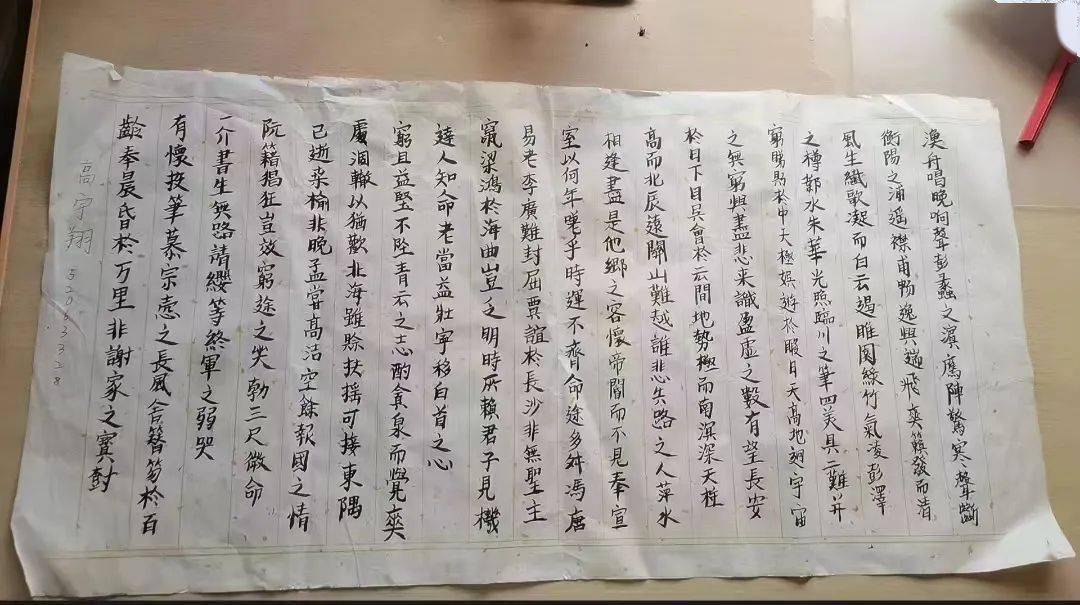 渔舟唱晚响聲彭蠡之濱鴈陣驚寒聲斷
衡陽之浦遥襟甫畅逸興遄飛爽籟發而清
風生纖歌凝而白云遏睢園綠竹氣凌彭澤
之樽鄴水朱華光照臨川之筆四美具二難并
窮睇眄於中天極娛遊於暇日天高地迥宇宙
之無窮興盡悲来識盈虚之數有望長安
於日下目吴會於云間地勢極而南溟深天柱
高而北辰遠關山難越誰悲失路之人萍水
相逢盡是他鄉之客懷帝閽而不見奉宣
室以何年嗟乎時運不齊命途多舛馮唐
易老李廣難封屈賈誼於長沙非無聖主
竄梁鴻於海曲豈乏明時所賴君子見機
達人知命老當益壯寧移白首之心
窮且益堅不坠青云之志酌貪泉而覺爽
處涸轍以猶歡北海雖賒扶摇可接東隅
已逝桑榆非晚孟嘗高洁空餘報國之情
阮籍猖狂豈效窮途之哭勃三尺微命
一介書生無路請缨等終軍之弱冠
有懷投筆慕宗慤之長風舍簪笏於百
齡奉晨昏於万里非謝家之寳樹
高宇翔